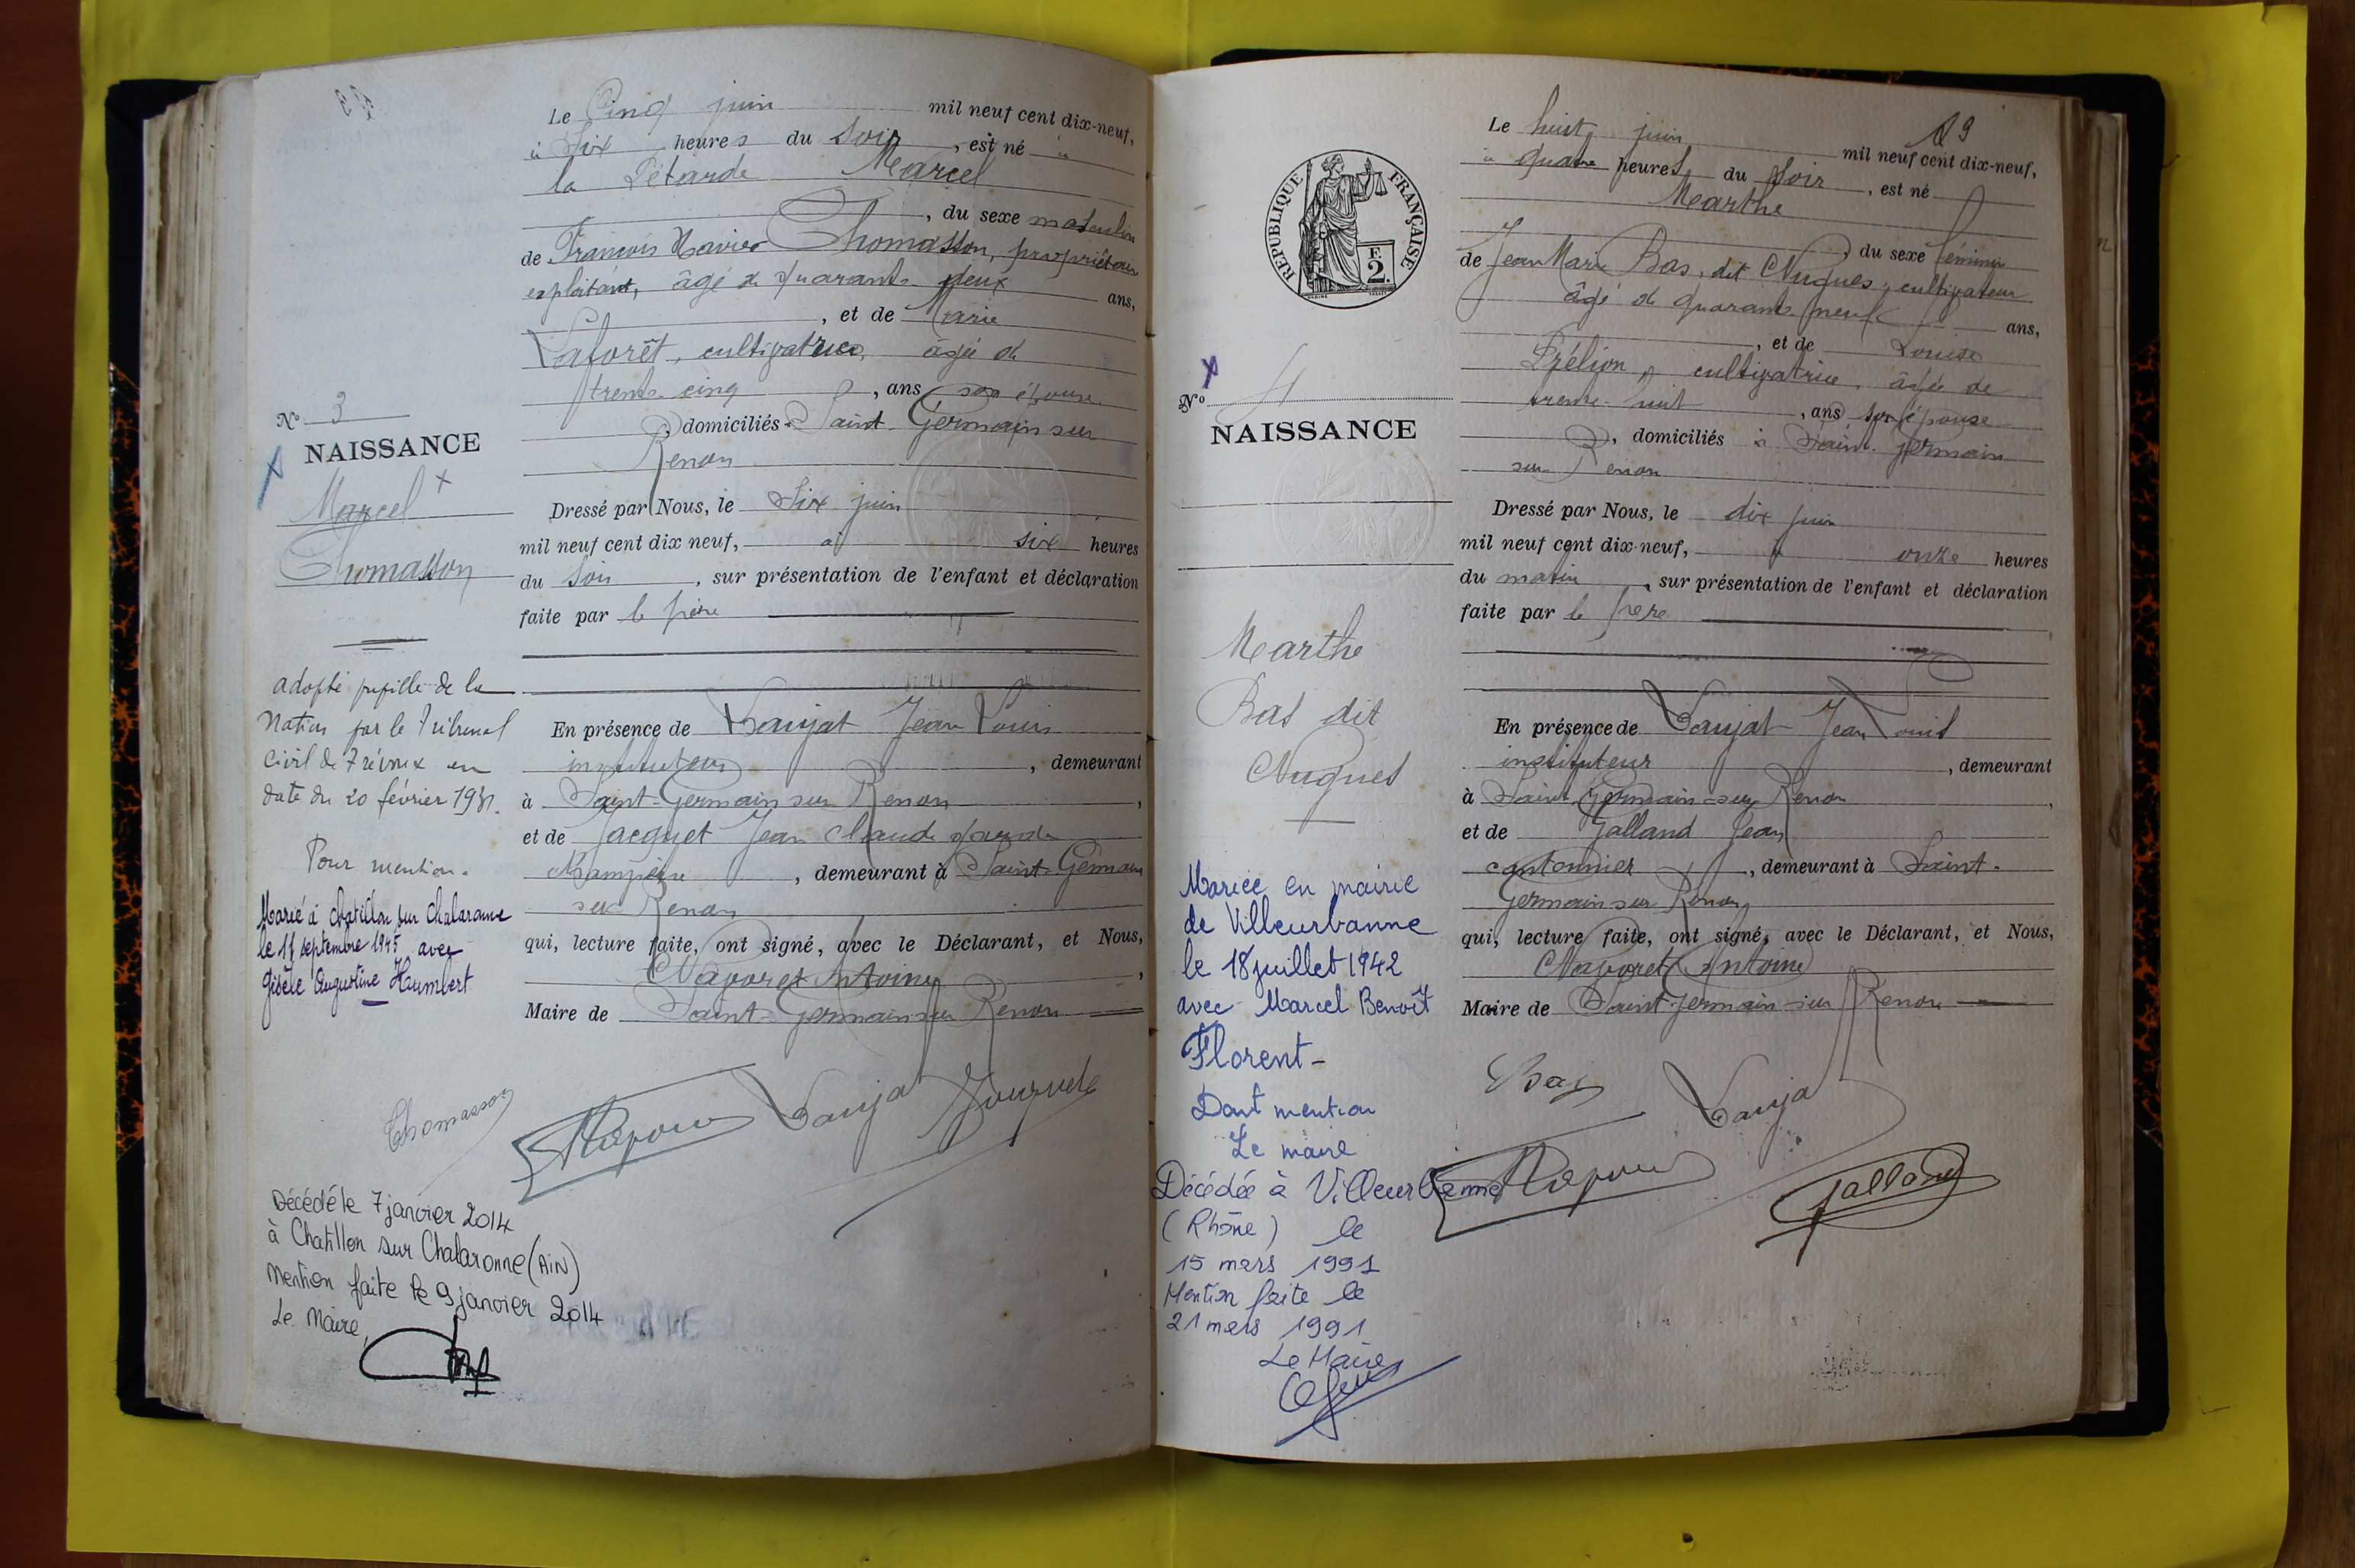 Le Cinq juin mil neuf cent dix-neuf,
à Six heures du Soir, est né à
la Pétarde Marcel
, du sexe masculin
de François Xavier Thomasson, propriétaire
exploitant, âgé de quarante deux ans,
, et de Marie
Laforêt, cultivatrice, âgée de
trente cinq, ans son épouse
, domiciliés à Saint Germain sur
Renon
N° 3
NAISSANCE
Marcel
Thomasson
Dressé par Nous, le Six juin
mil neuf cent dix neuf, à six heures
du Soir, sur présentation de l'enfant et déclaration
faite par le père
adopté pupille de la
Nation par le Tribunal
Civil de Trévoux en
date du 20 février 1931.
Pour mention.
Marié à Chatillon sur Chalaronne
le 11 septembre 1945 avec
Gisèle Augustine Humbert
En présence de Laujat Jean Louis
instituteur, demeurant
à Saint-Germain sur Renon,
et de Jacquet Jean Claude garde
champêtre, demeurant à Saint-Germain
sur Renon
qui, lecture faite, ont signé, avec le Déclarant, et Nous,
Antoine,
Maire de Saint-Germain sur Renon
Thomasson
Décédé le 7 janvier 2014
à Chatillon sur Chalaronne (AiN)
Mention faite le 9 janvier 2014
Le Maire,
19
Le huit juin mil neuf cent dix-neuf,
à quatre heures du Soir, est né
Marthe
, du sexe féminin
de Jean Marie Bas, dit Nugues, cultivateur
âgé de quarante neuf ans,
, et de Louise
cultivatrice, âgée de
trente-huit, ans son épouse
, domiciliés à Saint Germain
sur Renon
RÉPUBLIQUE FRANÇAISE
F.
2.
N° 4
NAISSANCE
Marthe
Bas dit
Nugues
Dressé par Nous, le dix juin
mil neuf cent dix-neuf, à onze heures
du matin, sur présentation de l'enfant et déclaration
faite par le père
En présence de Laujat Jean Louis
instituteur, demeurant
à Saint Germain sur Renon,
et de Galland Jean
cantonnier, demeurant à Saint-
Germain sur Renon
qui, lecture faite, ont signé, avec le Déclarant, et Nous,
Antoine
Maire de Saint Germain sur Renon
Mariée en mairie
de Villeurbanne
le 18 juillet 1942
avec Marcel Benoît
Florent-
Dont mention
Le maire
Décédée à Villeurbanne
(Rhône) le
15 mars 1991
Mention faite le
21 mars 1991
Le Maire
Bas
Laujat
Galland